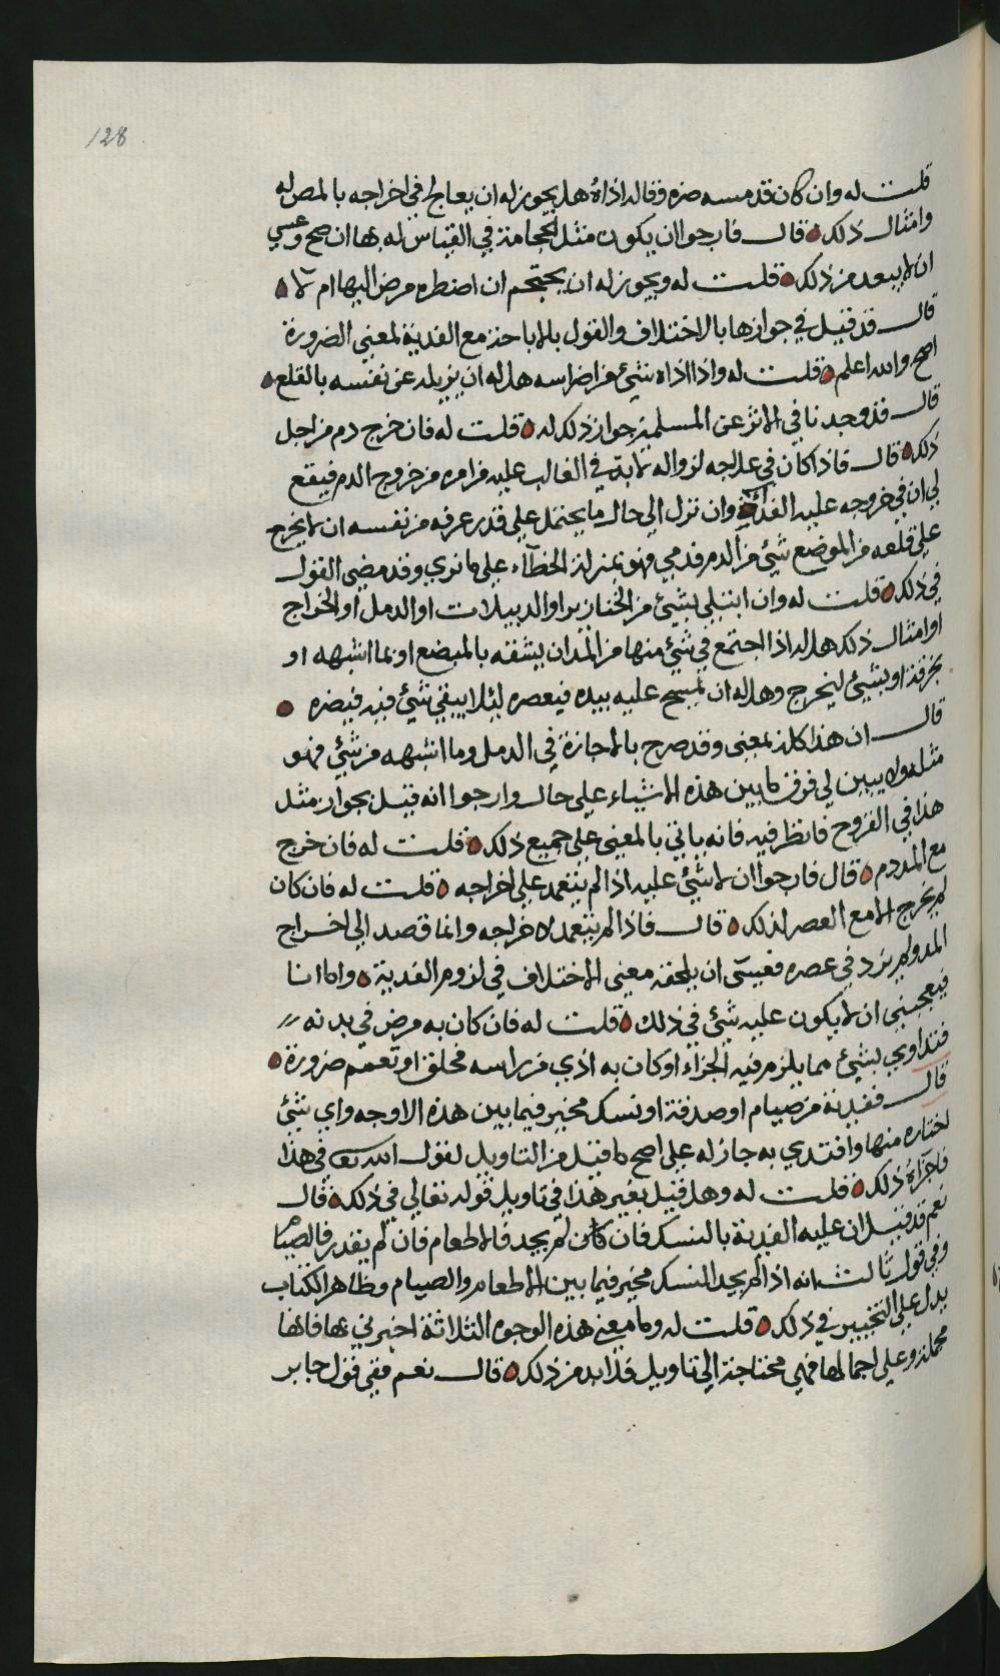 128
قلت له وان كان قد مسه ضره وقاله اذاه هل يجوز له ان يعالج في اخراجه بالمص له
وامثال ذلك قال فارجوا ان يكون مثل الحجامة في القياس له بها ان صح وعسي
ان لا يبعد من ذلك قلت له ويجوز له ان يحتجم ان اضطره مرض اليها ام لا
قال قد قيل في جوازها بالاختلاف والقول بالاباحة مع الفدية لمعني الضرورة
اصح والله اعلم قلت له واذا اذاه شئ من اضراسه هل له ان يزيله عن نفسه بالقلع
قال قد وجدنا في الاثر عن المسلمين جواز ذلك له قلت له فان خرج دم من اجل
ذلك قال فاذا كان في علاجه لزواله لا بد في الغالب عليه من امره من خروج الدم فيقع
لي ان في خروجه عليه الفدية وان نزل الي حال ما يحتمل علي قدر عرفه من نفسه ان لا يخرج
علي قلعه من الموضع شئ من الدم فدمي فهو بمنزلة الخطآء علي ما نري وقد مضي القول
في ذلك قلت له وان ابتلي بشئ من الخنازير او الدبيلات او الدمل او الخراج
او امثال ذلك هل له اذا اجتمع في شئ منها من المد ان يشقه بالمبضع او بما اشبهه او
بخرقة او بشئ ليخرج وهل له ان يمسح عليه بيده فيعصره لئلا يبقي شئ فيه فيضره
قال ان هذا كله بمعني وقد صرح بالاجازة في الدمل وما اشبهه من شئ فهو
مثله ولا يبين لي فرق ما بين هذه الاشياء علي حال وارجوا انه قيل بجواز مثل
هذا في القروح فانظر فيه فانه ياتي بالمعني علي جميع ذلك قلت له فان خرج
مع المد دم قال فارجوا ان لا شئ عليه اذا لم يتعمد علي اخراجه قلت له فان كان
لم يخرج الا مع العصر لذلك قال فاذا لم يتعمد لاخراجه وانما قصد الي اخراج
المد ولم يزد في عصره فعسي ان يلحقه معني الاختلاف في لزوم الفدية واما انا
فيعجبني ان لا يكون عليه شئ في ذلك قلت له فان كان به مرض في بدنه
فتداوي بشئ مما يلزم فيه الجزاء او كان به اذي من راسه فحلق او تعمم ضرورة
قال ففدية من صيام او صدقة او نسك مخير فيما بين هذه الاوجه واي شئ
اختاره منها وافتدي به جاز له علي اصح ما قيل من التاويل لقول الله تع في هذا
فاجزاه ذلك قلت له وهل قيل بغير هذا في تاويل قوله تعالي في ذلك قال
نعم قد قيل ان عليه الفدية بالنسك فان كان لم يجد فالاطعام فان لم يقدر فالصيام
وفي قول ثالث انه اذا لم يجد النسك مخير فيما بين الاطعام والصيام وظاهر الكتاب
يدل علي التخيير في ذلك قلت له وما معني هذه الوجوه الثلاثة اخبرني بها فانها
مجملة وعلي اجمالها فهي محتاجة الي تاويل فلا بد من ذلك قال نعم ففي قول جابر